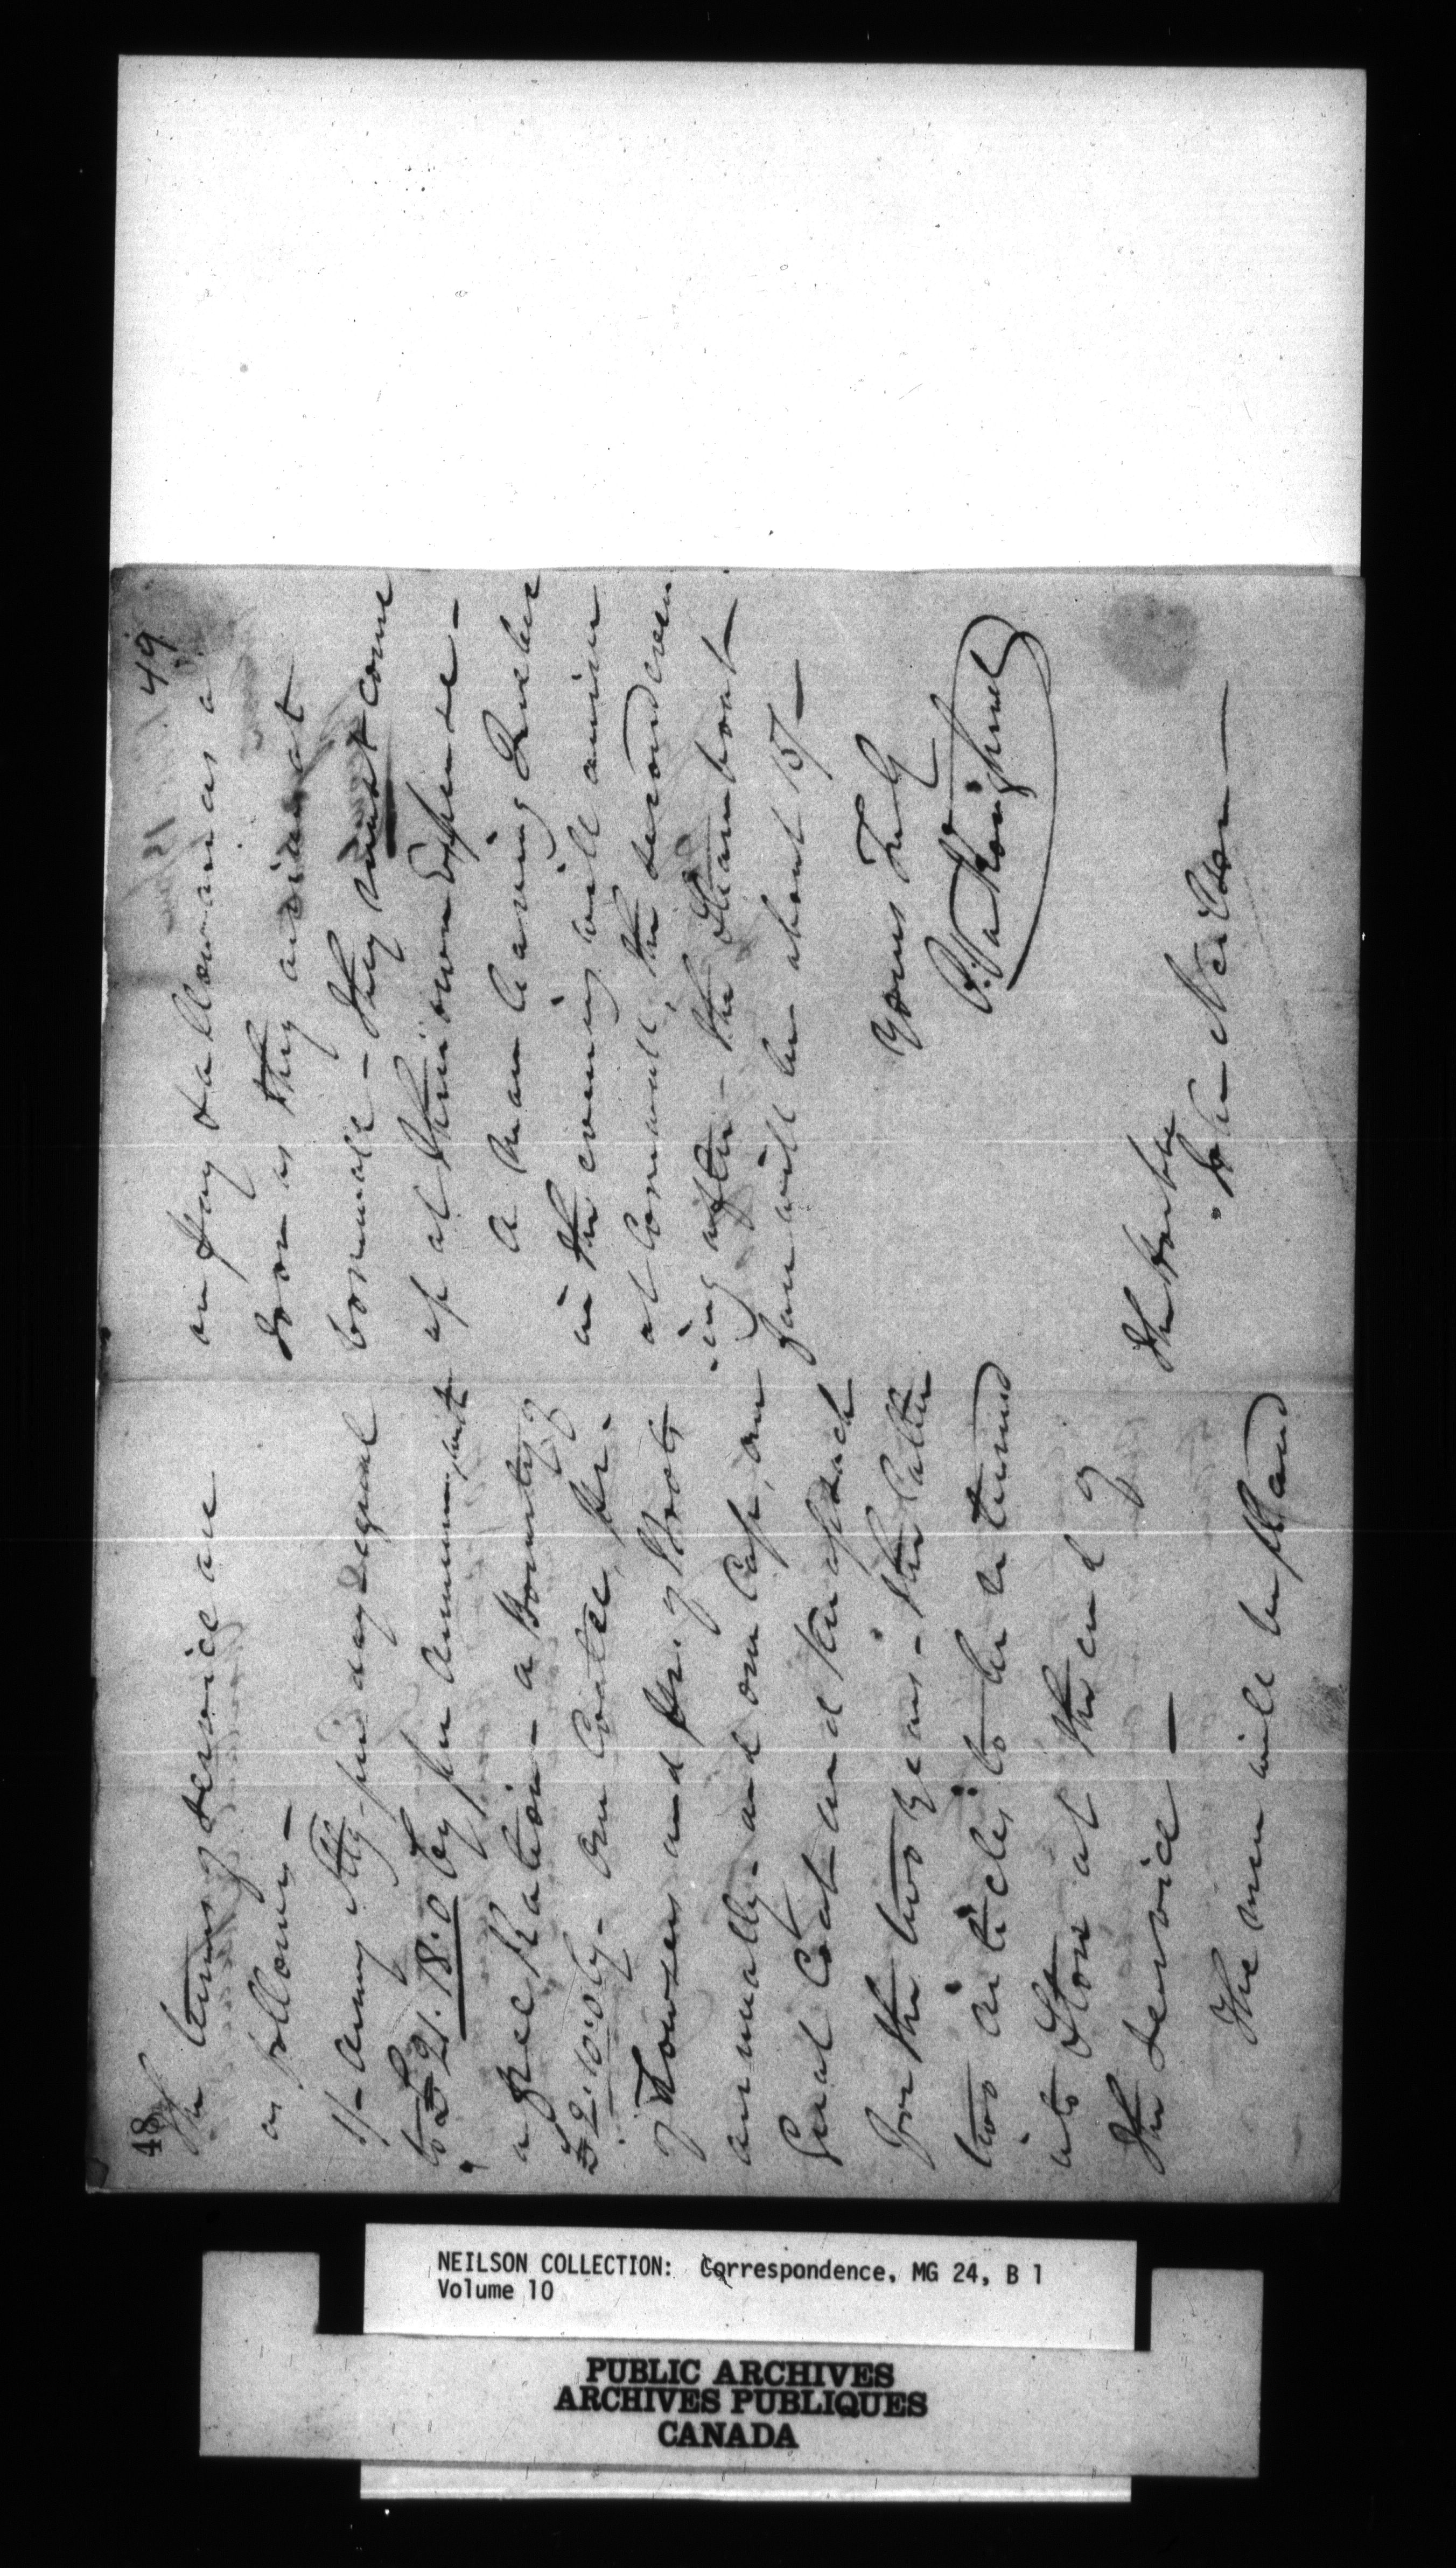 48
The terms of service are
as follows —
1/- Army Stg. per day equal
to £21.18.0 Cy per Annum, with
a free Ration - a Bounty of
£2.10.0 Cy. One Coatee, Pr.
of Trowsers and Pr. of Boots
annually - and one Cap, one
Great Coat and Knapsack
for the two years - the latter
two articles to be returned
into Store at the end of
the service —
The men will be placed
49
on pay & allowances as
soon as they arrive at
Cornwall - they must come
up at their own Expense -
A man leaving Quebec
in the evening will arrive
at Cornwall, the second even
-ing after - the Steamboat
fare will be about 15/-
Yours Truly
P. VanKoughnet
The Honble
John Neilson —
NEILSON COLLECTION: Correspondence, MG 24, B 1
Volume 10
PUBLIC ARCHIVES
ARCHIVES PUBLIQUES
CANADA